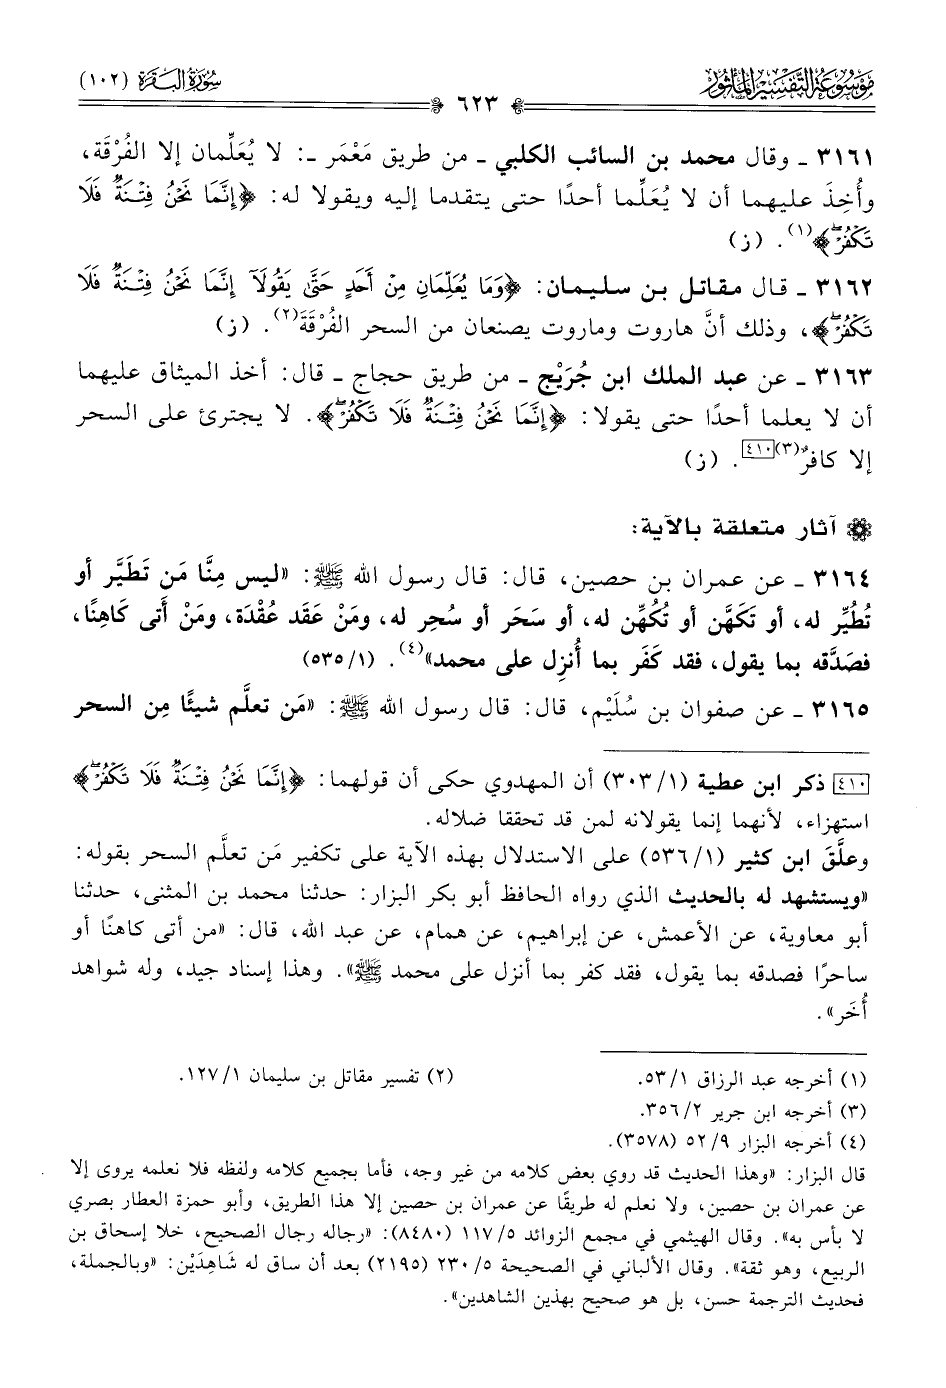 موسوعة التفسير المأثور
سورة البقرة (١٠٢)
٦٢٣
٣١٦١ ـ وقال محمد بن السائب الكلبي ـ من طريق مَعْمَر ـ: لا يُعَلِّمان إلا الفُرْقَة،
وأُخِذَ عليهما أن لا يُعَلِّما أحدًا حتى يتقدما إليه ويقولا له: ﴿إِنَّمَا نَحْنُ فِتْنَةٌ فَلَا
تَكْفُرْ﴾(١). (ز)
٣١٦٢ ـ قال مقاتل بن سليمان: ﴿وَمَا يُعَلِّمَانِ مِنْ أَحَدٍ حَتَّىٰ يَقُولَآ إِنَّمَا نَحْنُ فِتْنَةٌ فَلَا
تَكْفُرْ﴾، وذلك أنَّ هاروت وماروت يصنعان من السحر الفُرْقَة(٢). (ز)
٣١٦٣ ـ عن عبد الملك ابن جُرَيْج ـ من طريق حجاج ـ قال: أخذ الميثاق عليهما
أن لا يعلما أحدًا حتى يقولا: ﴿إِنَّمَا نَحْنُ فِتْنَةٌ فَلَا تَكْفُرْ﴾. لا يجترئ على السحر
إلا كافرٌ(٣)[٤١٠]. (ز)
آثار متعلقة بالآية:
٣١٦٤ ـ عن عمران بن حصين، قال: قال رسول الله ﷺ: «ليس مِنَّا مَن تَطَيَّر أو
تُطُيِّر له، أو تَكَهَّن أو تُكُهِّن له، أو سَحَر أو سُحِر له، ومَنْ عَقَد عُقْدَة، ومَنْ أَتى كَاهنًا،
فصَدَّقه بما يقول، فقد كَفَر بما أُنزِل على محمد»(٤). (١/ ٥٣٥)
٣١٦٥ ـ عن صفوان بن سُلَيْم، قال: قال رسول الله ﷺ: «مَن تعلَّم شيئًا مِن السحر
[٤١٠] ذكر ابن عطية (١/ ٣٠٣) أن المهدوي حكى أن قولهما: ﴿إِنَّمَا نَحْنُ فِتْنَةٌ فَلَا تَكْفُرْ﴾
استهزاء، لأنهما إنما يقولانه لمن قد تحققا ضلاله.
وعلَّقَ ابن كثير (١/ ٥٣٦) على الاستدلال بهذه الآية على تكفير مَن تعلَّم السحر بقوله:
«ويستشهد له بالحديث الذي رواه الحافظ أبو بكر البزار: حدثنا محمد بن المثنى، حدثنا
أبو معاوية، عن الأعمش، عن إبراهيم، عن همام، عن عبد الله، قال: «من أتى كاهنًا أو
ساحرًا فصدقه بما يقول، فقد كفر بما أنزل على محمد ﷺ». وهذا إسناد جيد، وله شواهد
أُخَر».
(١) أخرجه عبد الرزاق ١/ ٥٣.
(٢) تفسير مقاتل بن سليمان ١/ ١٢٧.
(٣) أخرجه ابن جرير ٢/ ٣٥٦.
(٤) أخرجه البزار ٩/ ٥٢ (٣٥٧٨).
قال البزار: «وهذا الحديث قد روي بعض كلامه من غير وجه، فأما بجميع كلامه ولفظه فلا نعلمه يروى إلا
عن عمران بن حصين، ولا نعلم له طريقًا عن عمران بن حصين إلا هذا الطريق، وأبو حمزة العطار بصري
لا بأس به». وقال الهيثمي في مجمع الزوائد ٥/ ١١٧ (٨٤٨٠): «رجاله رجال الصحيح، خلا إسحاق بن
الربيع، وهو ثقة». وقال الألباني في الصحيحة ٥/ ٢٣٠ (٢١٩٥) بعد أن ساق له شَاهِدَيْن: «وبالجملة،
فحديث الترجمة حسن، بل هو صحيح بهذين الشاهدين».